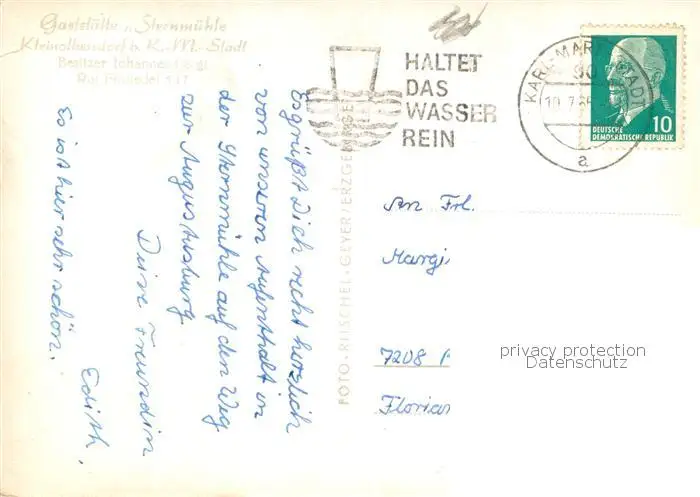 Gaststätte „Sternmühle
Kleinolbersdorf b. K.-M.-Stadt
Besitzer Johannes
Ruf Einsiedel
HALTET
DAS
WASSER
REIN
KARL-MARX-STADT
90
10.7.65
a
DEUTSCHE
DEMOKRATISCHE REPUBLIK
10
FOTO-RITSCHEL-GEYER/ERZGEBIRGE
Es grüßt Dich recht herzlich
von unserem Aufenthalt in
der Sternmühle auf dem Weg
zur Augustusburg
Deine Freundin
Edith.
Es ist hier sehr schön.
An Frl.
Margi
7208
Florian
privacy protection
Datenschutz